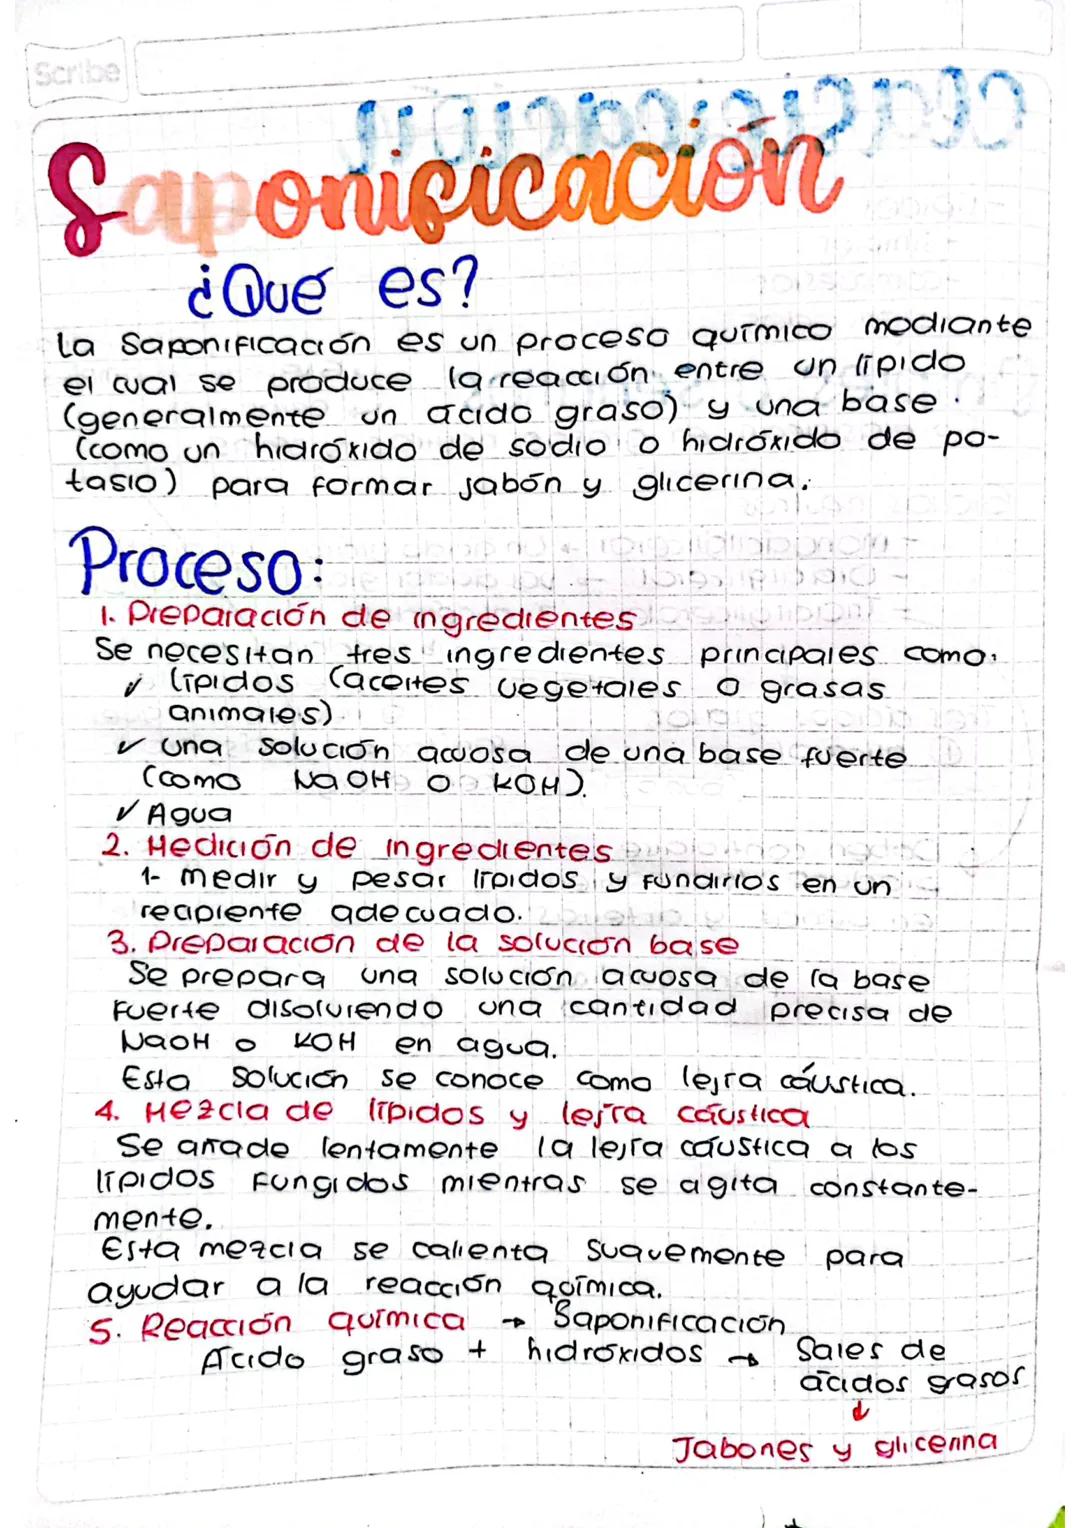 Scribe
Saponificación
¿Qué es?
La Saponificación es un proceso químico mediante
el cual se produce la reacción entre un lípido
(generalmente un ácido graso) y una base
(como un hidróxido de sodio o hidróxido de po-
tasio) para formar jabón y glicerina.
Proceso:
1. Preparación de ingredientes
Se necesitan tres ingredientes principales como:
✓ lípidos (aceites vegetales o grasas
animales)
✓ una solución acuosa de una base fuerte
(como NaOH o KOH).
✓ Agua
2. Medición de ingredientes
1- medir y pesar lípidos y fundirlos en un
recipiente adecuado.
3. Preparación de la solución base
Se prepara una solución acuosa de la base
fuerte disolviendo una cantidad precisa de
NaOH o KOH en agua.
Esta solución se conoce como lejía cáustica.
4. Mezcla de lípidos y lejía cáustica
Se añade lentamente la lejía cáustica a los
lípidos fungidos mientras se agita constante-
mente.
Esta mezcla se calienta suavemente para
ayudar a la reacción química.
5. Reacción química → Saponificación
Ácido graso + hidróxidos → Sales de
ácidos grasos
↓
Jabones y glicerina